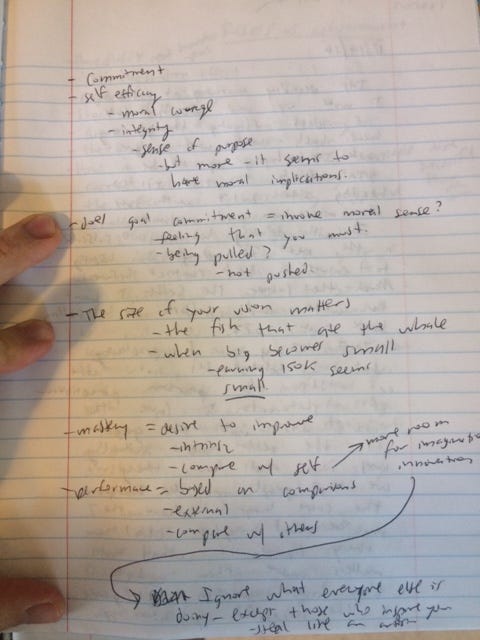 - Commitment
- self efficacy
- moral courage
- integrity
- sense of purpose
- but more - it seems to
have moral implications.
- does goal commitment = invoke moral sense?
- feeling that you must.
- being pulled?
- not pushed.
- The size of your vision matters
- the fish that ate the whale
- when big becomes small
- earning 150K seems
small.
- mastery = desire to improve
- intrinsic
- compare w/ self
more room
for imagination
innovation
- performance = based on comparisons
- external
- compare w/ others
Ignore what everyone else is
doing - except those who inspire you
- steal like an artist